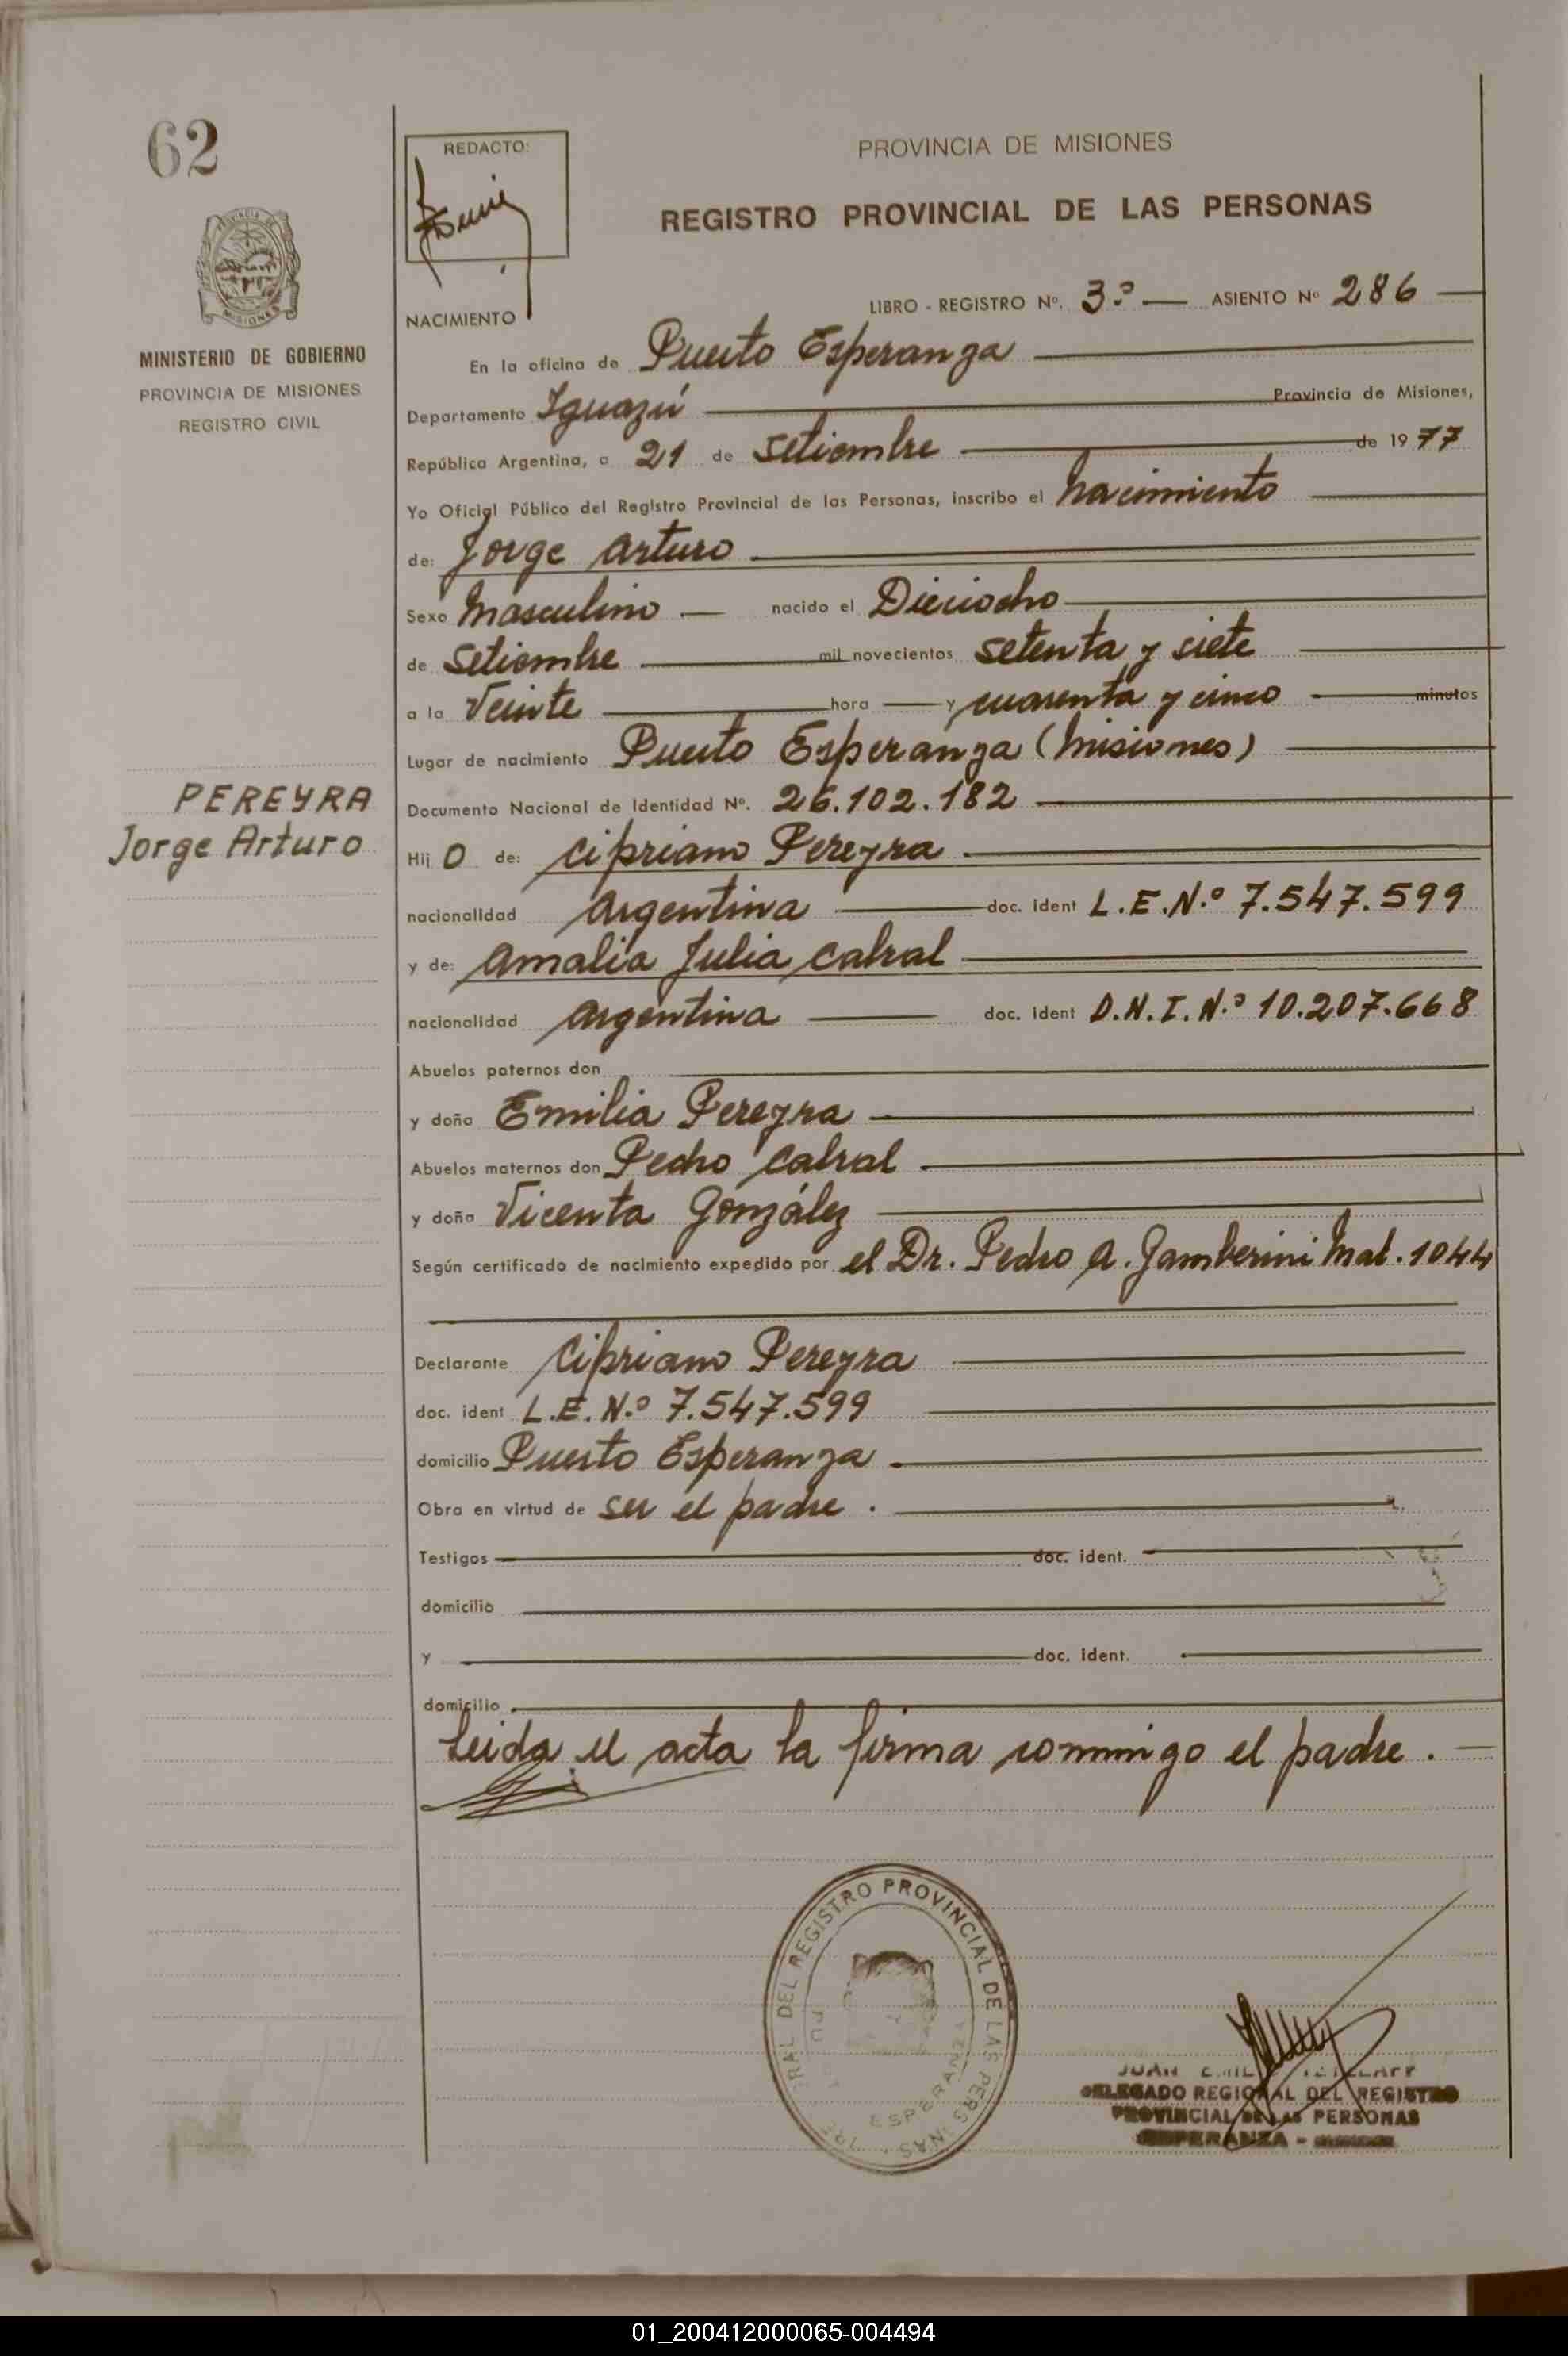 62
PROVINCIA DE
MISIONES
MINISTERIO DE GOBIERNO
PROVINCIA DE MISIONES
REGISTRO CIVIL
PEREYRA
Jorge Arturo
REDACTO:
PROVINCIA DE MISIONES
REGISTRO PROVINCIAL DE LAS PERSONAS
LIBRO - REGISTRO Nº. 3º — ASIENTO Nº 286 —
NACIMIENTO
En la oficina de Puerto Esperanza
Departamento Iguazú Provincia de Misiones,
República Argentina, a 21 de setiembre de 1977
Yo Oficial Público del Registro Provincial de las Personas, inscribo el nacimiento
de: Jorge Arturo
Sexo Masculino — nacido el Dieciocho
de setiembre mil novecientos setenta y siete
a la Veinte hora — y cuarenta y cinco minutos
Lugar de nacimiento Puerto Esperanza (Misiones)
Documento Nacional de Identidad Nº. 26.102.182
Hij o de: Cipriano Pereyra
nacionalidad Argentina doc. ident L.E.N.º 7.547.599
y de: Amalia Julia Cabral
nacionalidad Argentina doc. ident D.N.I.N.º 10.207.668
Abuelos paternos don
y doña Emilia Pereyra
Abuelos maternos don Pedro Cabral
y doña Vicenta González
Según certificado de nacimiento expedido por el Dr. Pedro A. Gamberini Mat. 1044
Declarante Cipriano Pereyra
doc. ident L.E. N.º 7.547.599
domicilio Puerto Esperanza
Obra en virtud de ser el padre .
Testigos doc. ident.
domicilio
y doc. ident.
domicilio
Leida el acta la firma conmigo el padre . —
DEL REGISTRO PROVINCIAL DE LAS PERSONAS
ESPERANZA
JUAN
DELEGADO REGIONAL DEL REGISTRO
PROVINCIAL DE LAS PERSONAS
ESPERANZA -
01_200412000065-004494